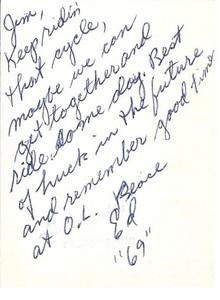 Jim,
Keep ridin'
that cycle,
maybe we can
get together and
ride some day. Best
of luck in the future
and remember good time
at O.L. Peace
Ed
"69"